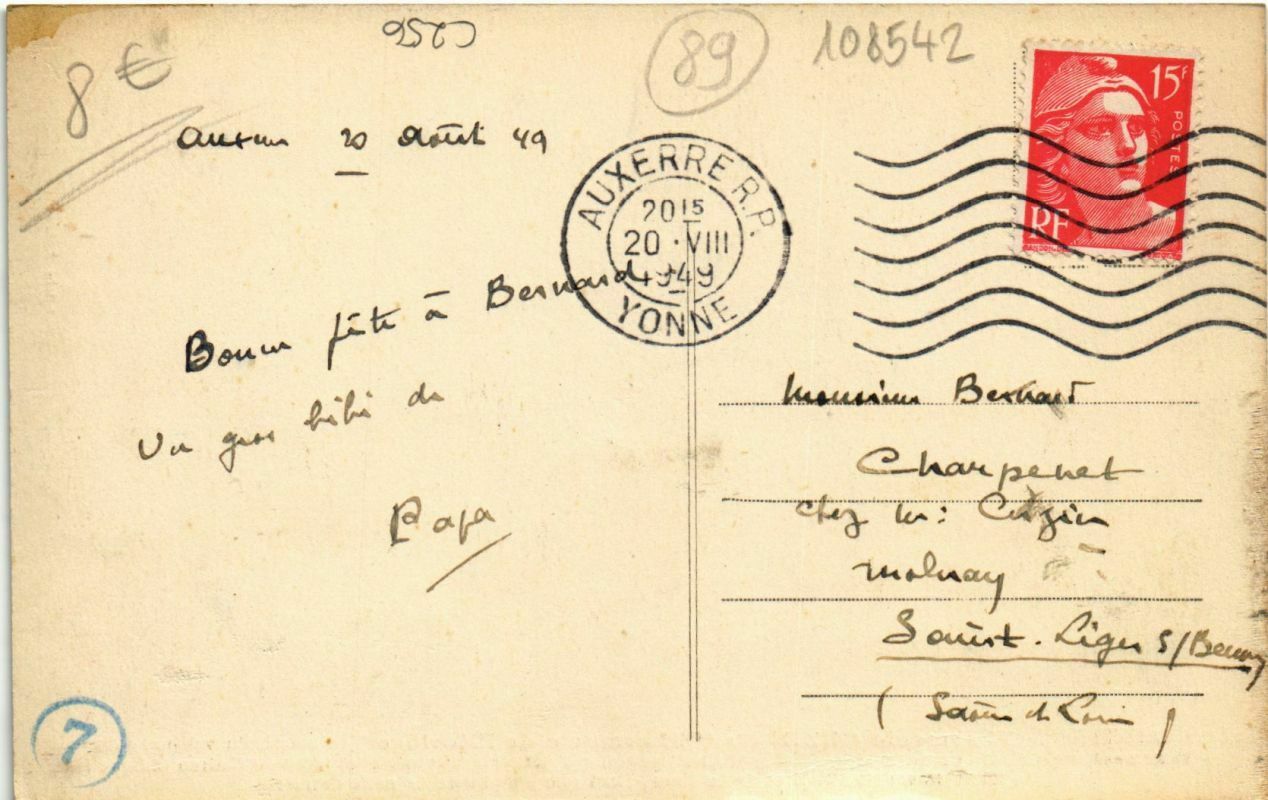 C256
89
108542
8 €
15F
POSTES
RF
AUXERRE R.P.
20 15
20 · VIII
1949
YONNE
20 août 49
Bonne fête à Bernard
Un gros bibi de
Papa
Monsieur Bernard
Charpenet
chez Mr: Cugin
Saint-Léger s/Beuvray
(Saône et Loire)
7